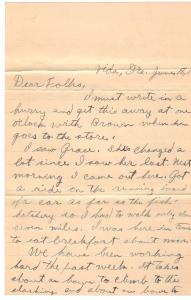 Vida, Ore. June 15,
Dear Folks,
I must write in a
hurry and get this away at one
o'clock with Brown when he
goes to the store.
I saw Grace. She's changed a
lot since I saw her last. Next
morning I came out here. Got
a ride on the running board
of a car as far as the fish-
hatchery so I had to walk only
seven miles. I was here in time
to eat breakfast about noon.
We have been working
hard the past week. It takes
about an hour to climb to the
slashing and about an hour to